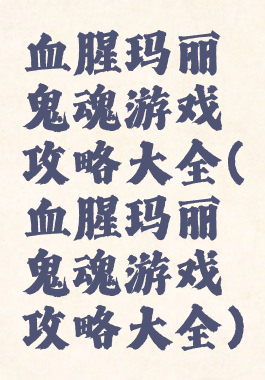 血腥玛丽
鬼魂游戏
攻略大全(
血腥玛丽
鬼魂游戏
攻略大全)